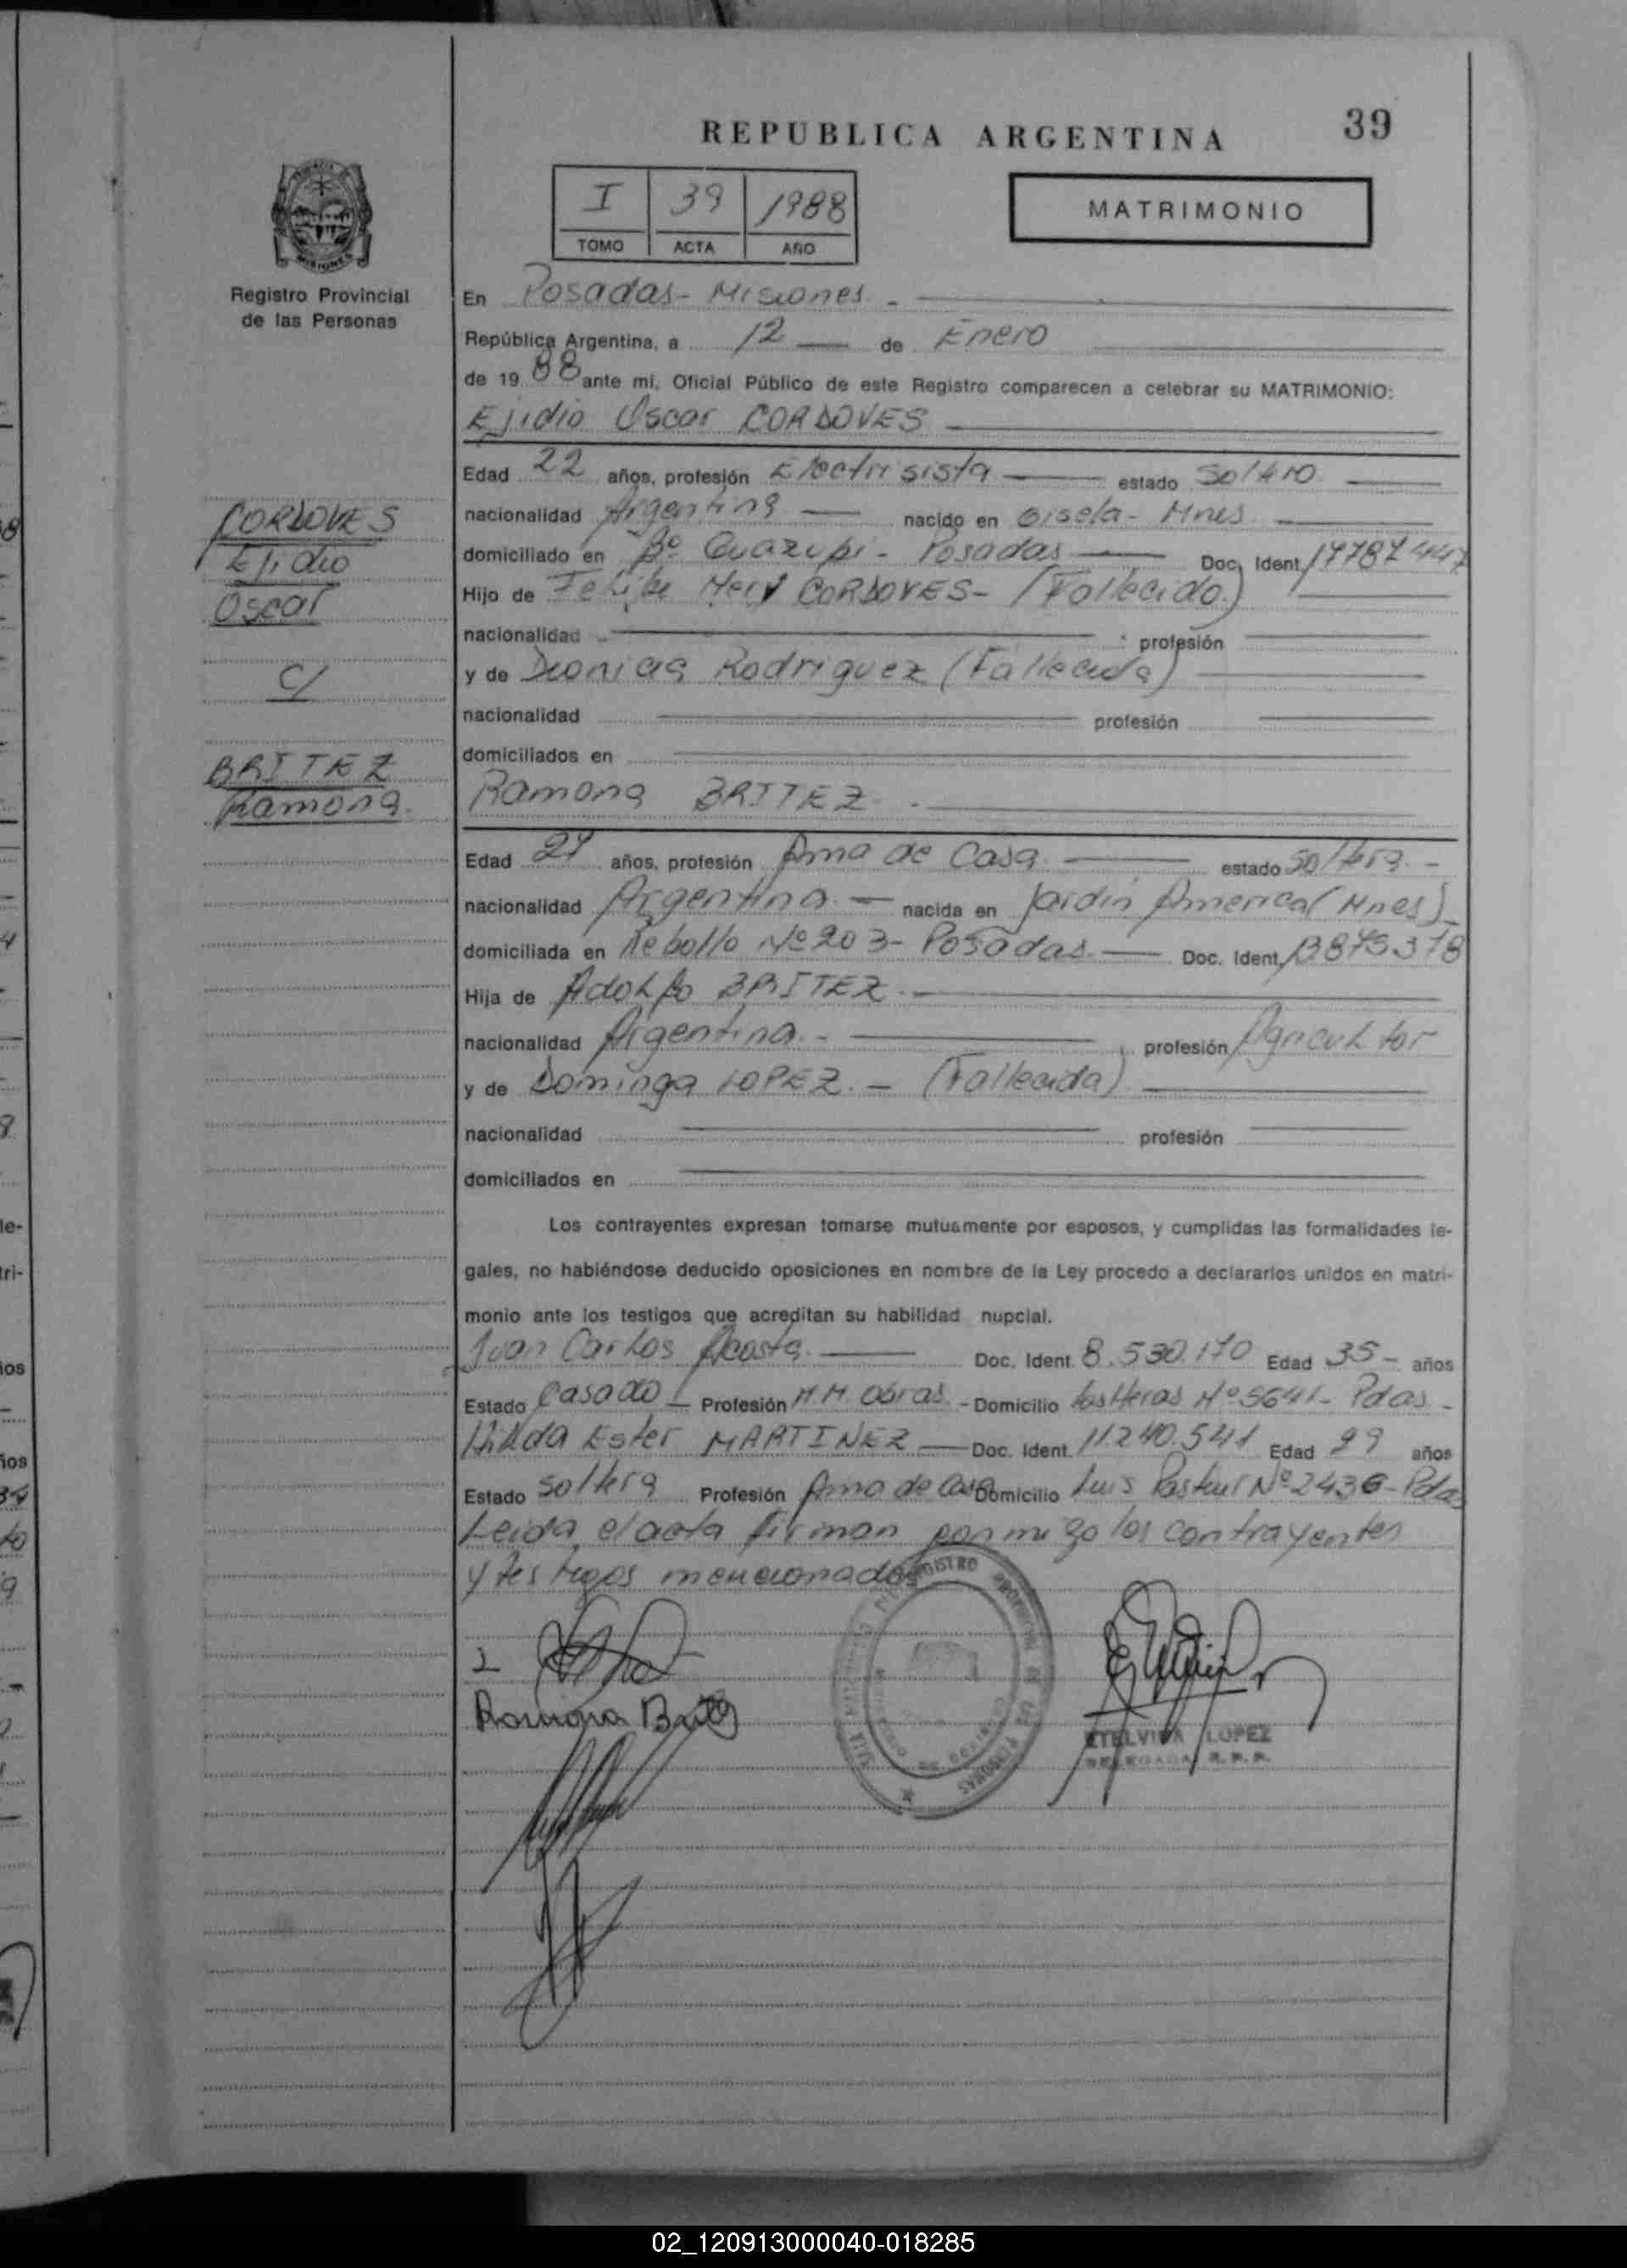 REPUBLICA ARGENTINA
39
I 39 1988
TOMO ACTA AÑO
MATRIMONIO
Registro Provincial
de las Personas
En Posadas - Misiones. -
República Argentina, a 12 de Enero
de 19 88 ante mí, Oficial Público de este Registro comparecen a celebrar su MATRIMONIO:
Ejidio Oscar CORDOVES
Edad 22 años, profesión Electrisista estado Soltero
nacionalidad Argentina nacido en Gisela - Mnes
domiciliado en Bº Guazupi - Posadas Doc. Ident. 17787447
Hijo de Felipe CORDOVES - (Fallecido)
nacionalidad profesión
y de Dionicia Rodriguez (Fallecida)
nacionalidad profesión
domiciliados en
CORDOVES
Ejidio
Oscar
C/
BRITEZ
Ramona
Ramona BRITEZ. -
Edad años, profesión Ama de Casa estado Soltera. -
nacionalidad Argentina. - nacida en Jardín America (Mnes)
domiciliada en Rebollo Nº 203 - Posadas. Doc. Ident.
Hija de Adolfo BRITEZ. -
nacionalidad Argentina. - profesión Agricultor
y de Dominga LOPEZ. - (Fallecida)
nacionalidad profesión
domiciliados en
Los contrayentes expresan tomarse mutuamente por esposos, y cumplidas las formalidades le-
gales, no habiéndose deducido oposiciones en nombre de la Ley procedo a declararlos unidos en matri-
monio ante los testigos que acreditan su habilidad nupcial.
Juan Carlos Acosta. Doc. Ident. 8.530.170 Edad 35 - años
Estado Casado - Profesión M.M. Obras. - Domicilio Las Heras Nº 5641 - Pdas -
Hilda Ester MARTINEZ Doc. Ident. 11.240.541 Edad 29 años
Estado Soltera Profesión Ama de casa Domicilio Luis Pasteur Nº 2436 - Pdas
Leida el acta firman conmigo los contrayentes
y testigos mencionados
Ramona Britez
ETELVINA LOPEZ
DELEGADA R.P.P.
02_120913000040-018285